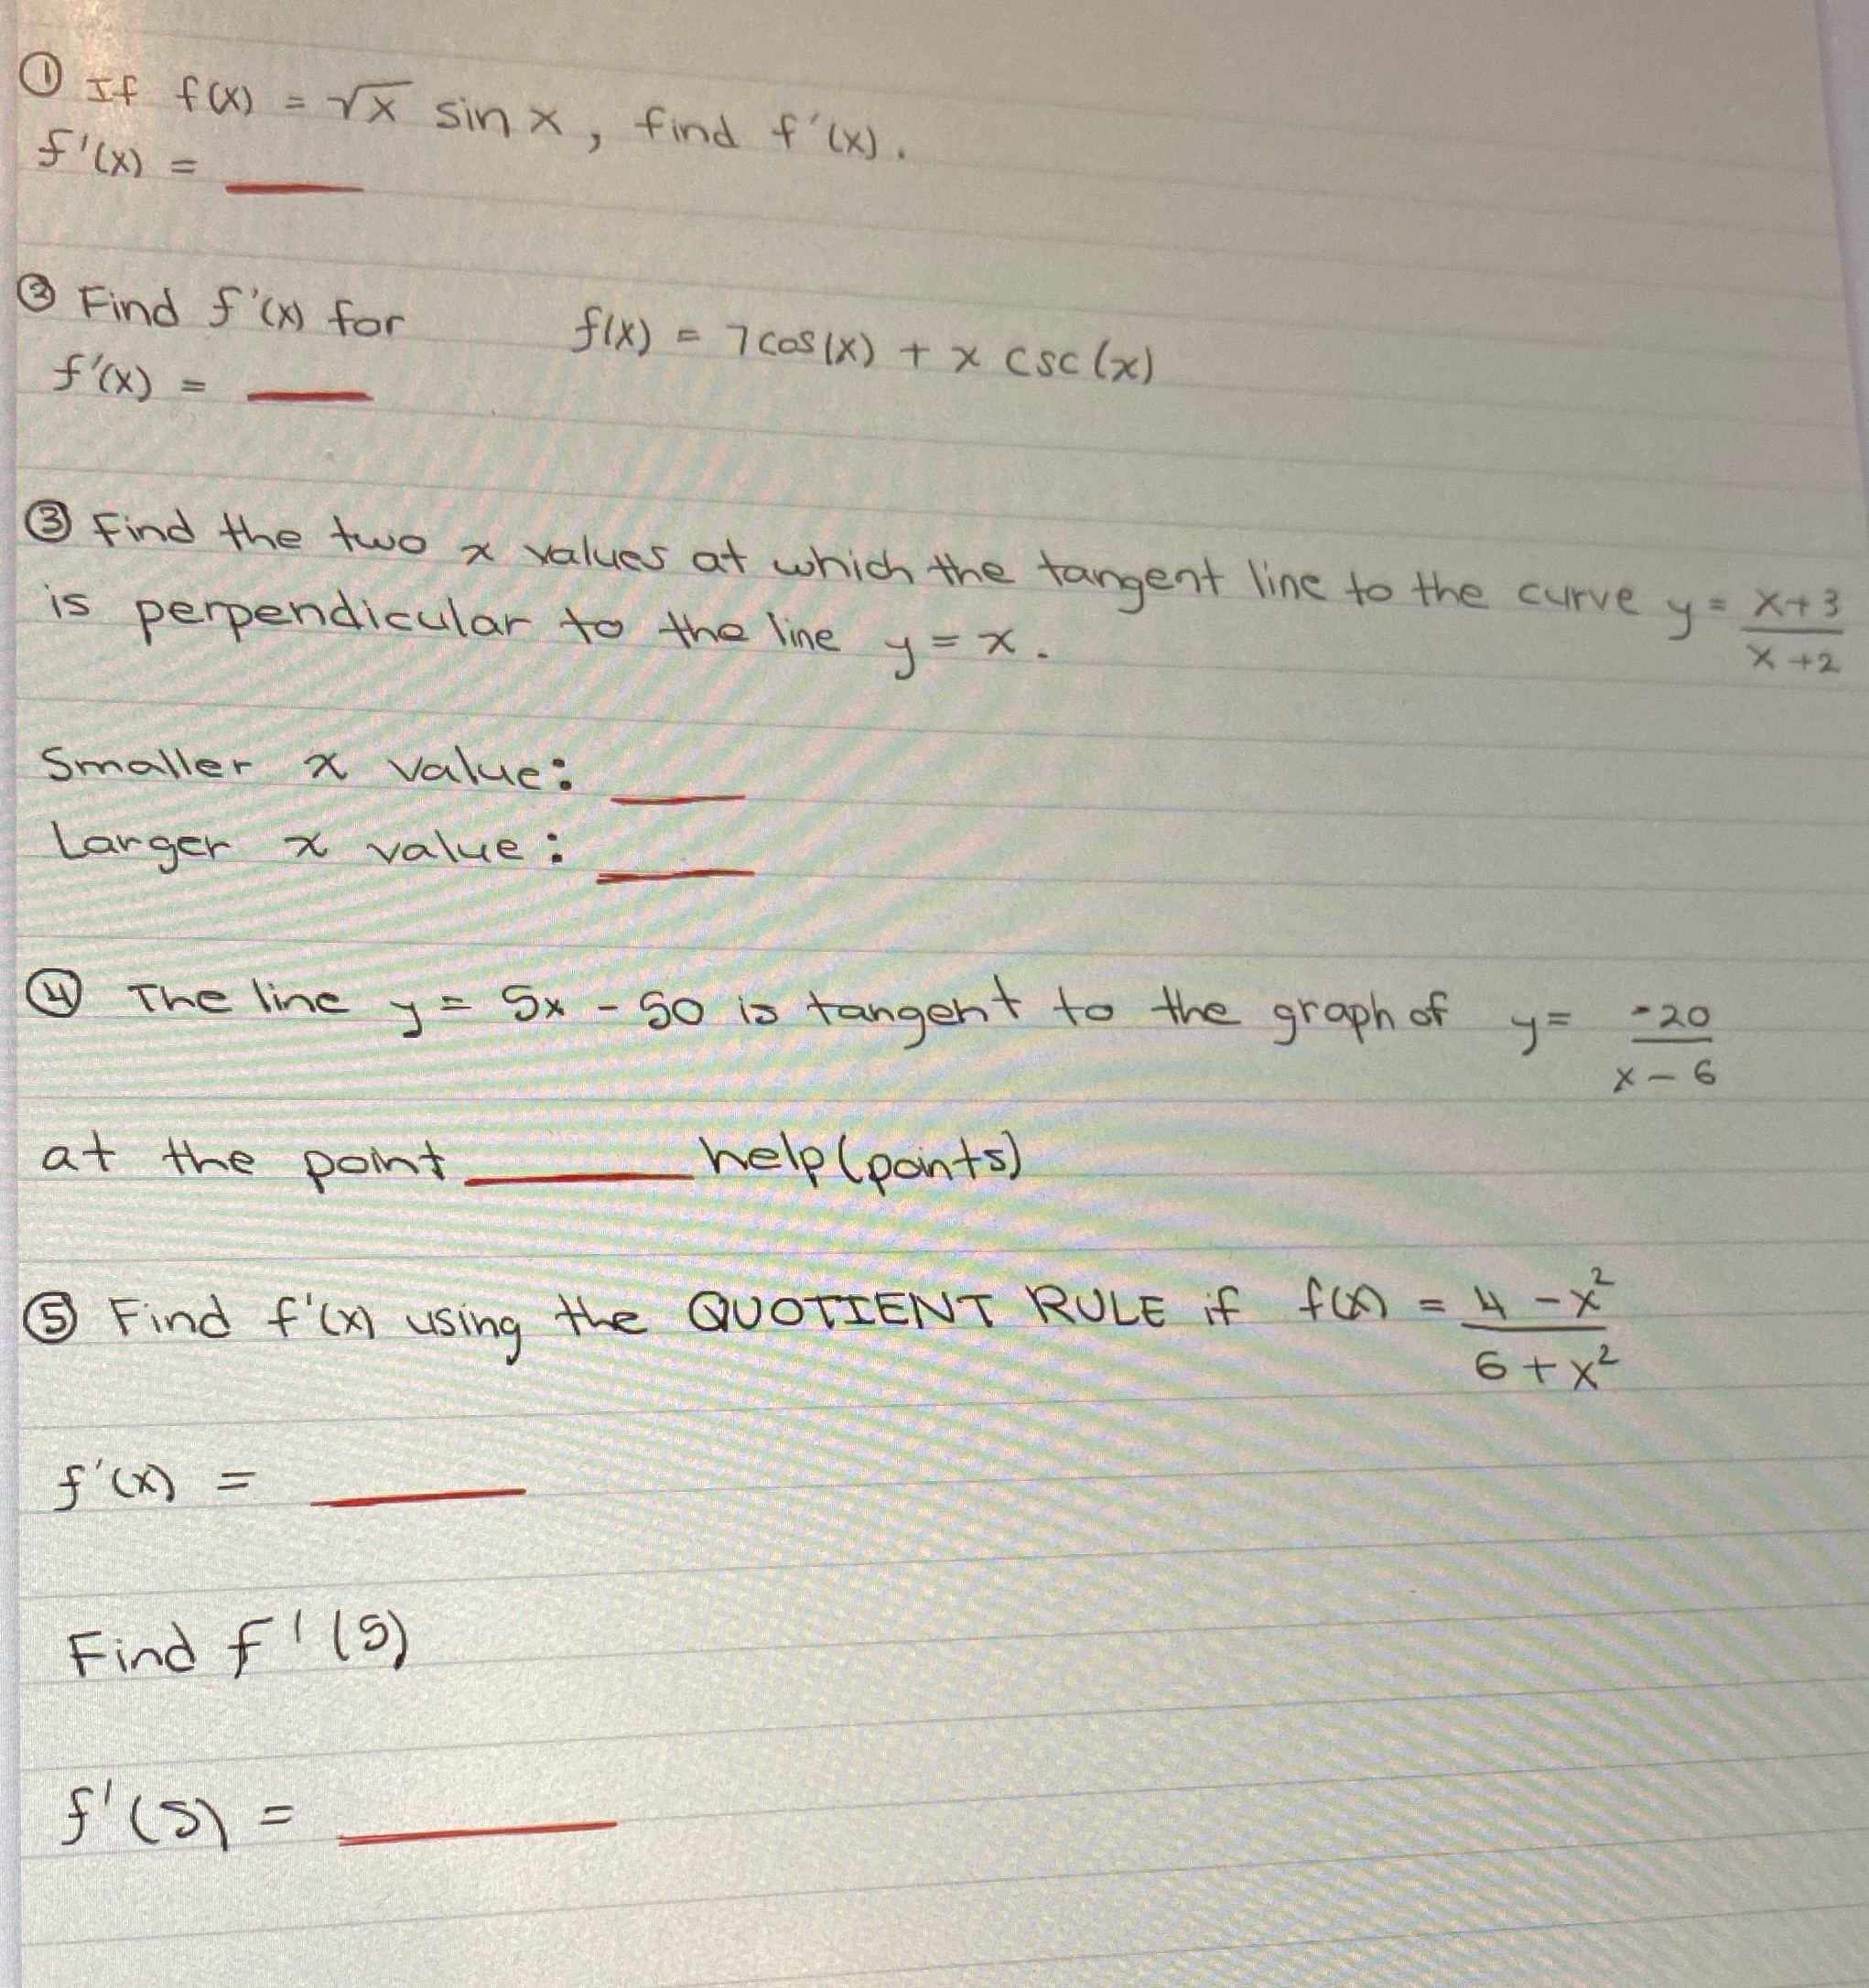 ① If f(x) = √x sin x, find f'(x).
f'(x) = ___
② Find f'(x) for f(x) = 7cos(x) + x csc(x)
f'(x) = ___
③ Find the two x values at which the tangent line to the curve y = (x+3)/(x+2)
is perpendicular to the line y = x.
Smaller x value: ___
Larger x value: ___
④ The line y = 5x - 50 is tangent to the graph of y = -20/(x-6)
at the point ___ help (points)
⑤ Find f'(x) using the QUOTIENT RULE if f(x) = (4-x²)/(6+x²)
f'(x) = ___
Find f'(5)
f'(5) = ___